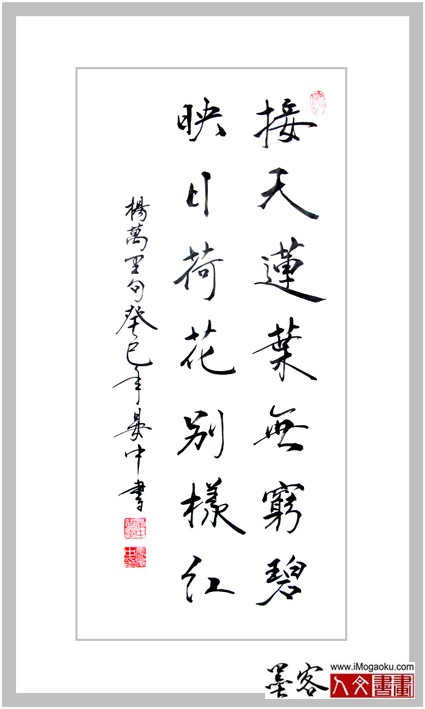 接天蓮葉無窮碧
映日荷花别樣红
楊萬里句癸巳年晏中書
墨客
www.iMogaoku.com
人文書畫